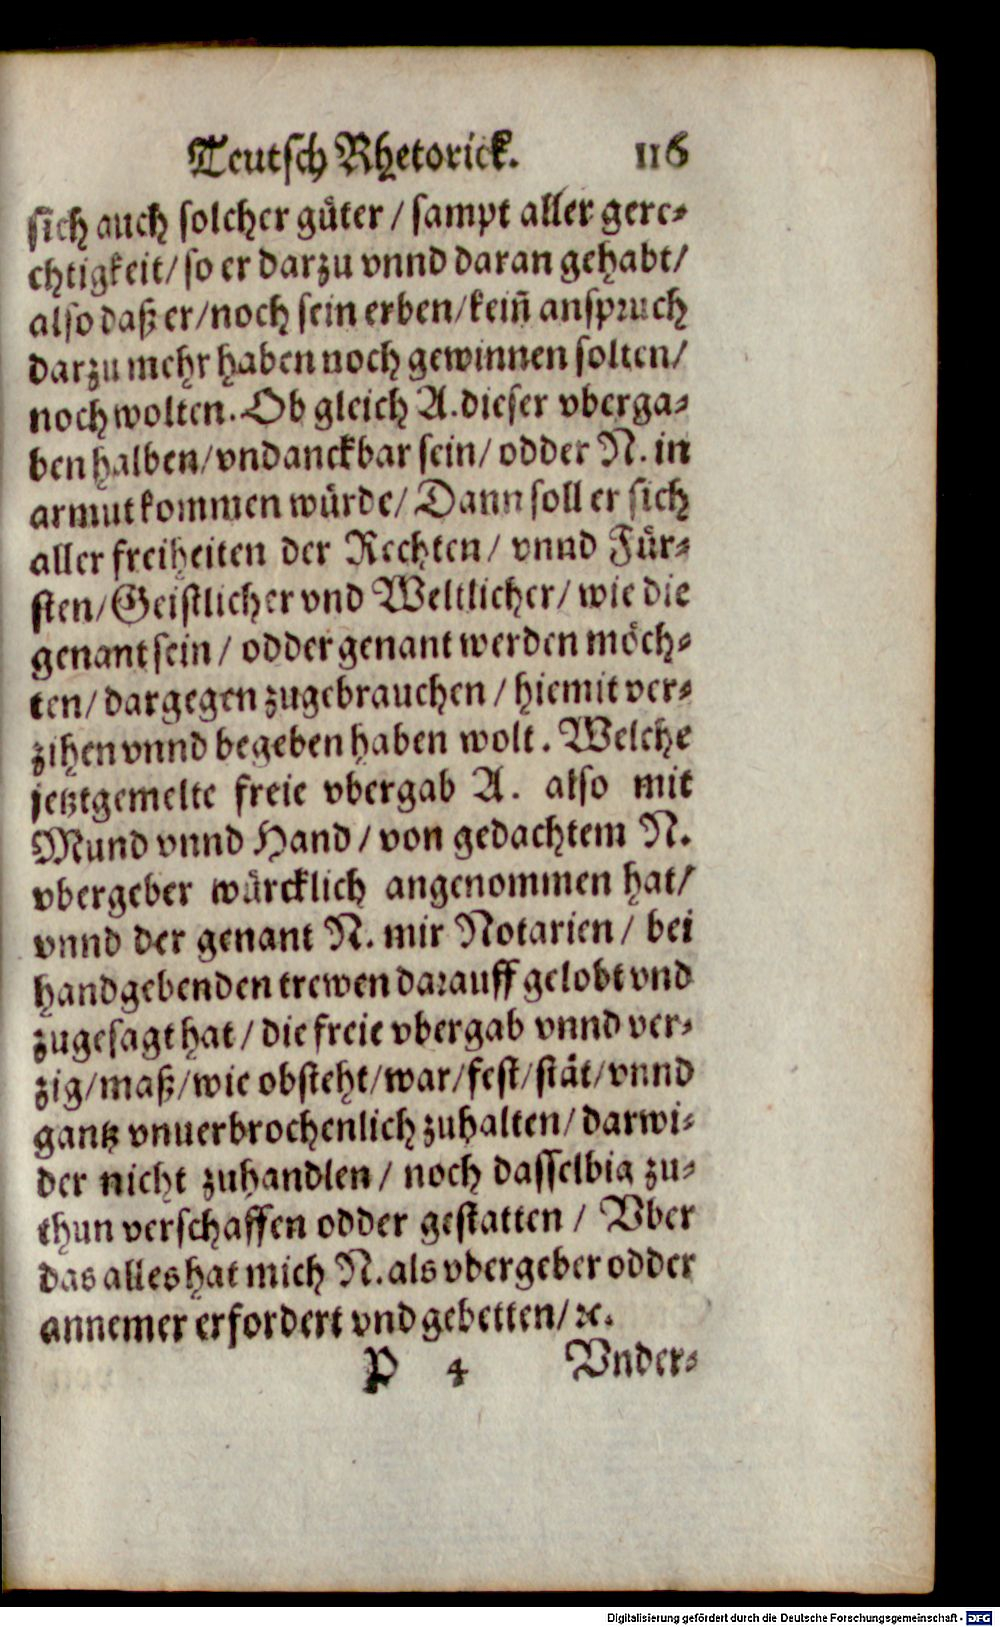 Teutsch Rhetorick. 116
sich auch solcher güter / sampt aller gere⸗
chtigkeit / so er darzu vnnd daran gehabt /
also daß er / noch sein erben / keiñ anspruch
darzu mehr haben noch gewinnen solten /
noch wolten. Ob gleich A. dieser vberga⸗
ben halben / vndanckbar sein / odder N. in
armut kommen würde / Dann soll er sich
aller freiheiten der Rechten / vnnd Für⸗
sten / Geistlicher vnd Weltlicher / wie die
genant sein / odder genant werden möch⸗
ten / dargegen zugebrauchen / hiemit ver⸗
zihen vnnd begeben haben wolt. Welche
jetztgemelte freie vbergab A. also mit
Mund vnnd Hand / von gedachtem N.
vbergeber würcklich angenommen hat /
vnnd der genant N. mir Notarien / bei
handgebenden trewen darauff gelobt vnd
zugesagt hat / die freie vbergab vnnd ver⸗
zig / maß / wie obsteht / war / fest / stät / vnnd
gantz vnuerbrochenlich zuhalten / darwi⸗
der nicht zuhandlen / noch dasselbig zu⸗
thun verschaffen odder gestatten / Vber
das alles hat mich N. als vbergeber odder
annemer erfordert vnd gebetten / ꝛc.
P 4 Vnder⸗
Digitalisierung gefördert durch die Deutsche Forschungsgemeinschaft - DFG